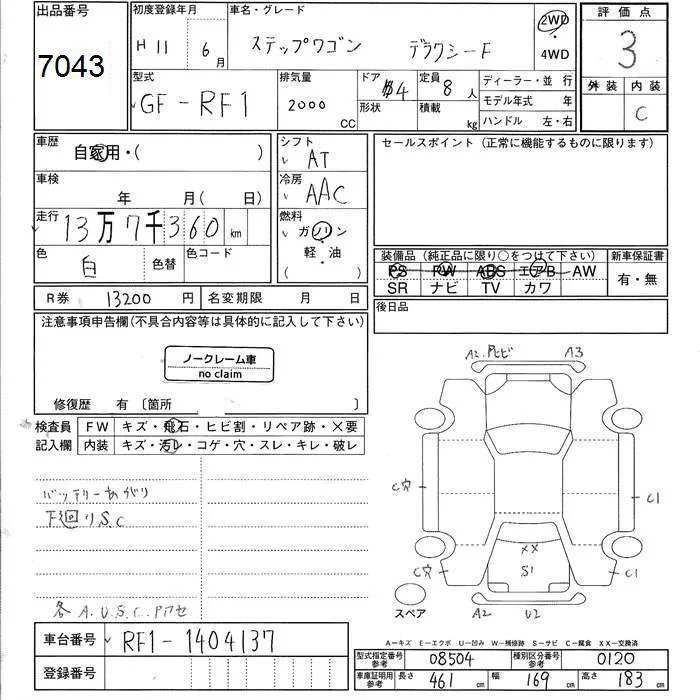 出品番号
7043
初度登録年月
H 11 6月
車名・グレード
ステップワゴン デラクシーF
2WD
4WD
評価点
3
外装 内装
C
型式
GF-RF1
排気量
2000
CC
ドア
4
形状
定員
8人
積載
kg
ディーラー・並行
モデル年式 年
ハンドル 左・右
車歴
自家用・( )
シフト
AT
セールスポイント (正常に機能するものに限ります)
車検
年 月( 日)
冷房
AAC
走行
13万7千360km
燃料
ガソリン
軽・油
( )
色
白
色替
色コード
装備品 (純正品に限り○をつけて下さい)
新車保証書
PS PW ABS エアB AW
SR ナビ TV カワ
有・無
R券 13200円
名変期限 月 日
後日品
注意事項申告欄(不具合内容等は具体的に記入して下さい)
ノークレーム車
no claim
修復歴 有 〔箇所 〕
検査員
記入欄
FW キズ・飛石・ヒビ割・リペア跡・×要
内装 キズ・汚レ・コゲ・穴・スレ・キレ・破レ
バッテリーあがり
下廻りS.C
各A.U.S.C.
A2. A3
C穴 C1
XX
S1
C穴 C1
スペア
A2 U2
車台番号 RF1-1404137
登録番号
A−キズ E−エクボ U−凹み W−補修跡 S−サビ C−腐食 XX−交換済
型式指定番号
参考
08504
種別区分番号
参考
0120
車庫証明用
参考
長さ 461 cm 幅 169 cm 高さ 183 cm